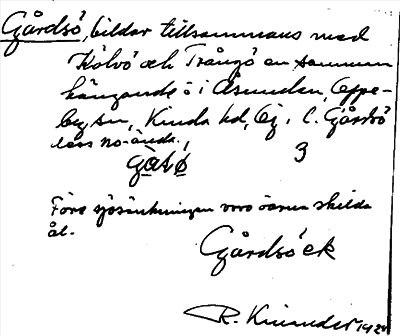 Gårdsö, bildar tillsammans med
Kölvö och Trångö en samman
hängande ö i Åsunden, Oppe-
by sn, Kinda hd, Ög. l. Gårdsö
lass no-ända.
gɑsø 3
Före sjösänkningen voro öarna skilda
åt.
Gårdsö ek
R. Kinander 1929